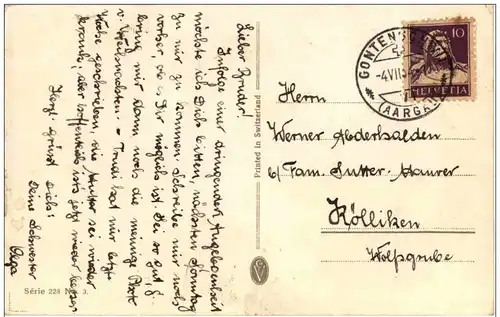 Lieber Bruder!
Infolge einer dringenden Angelegenheit
möchte ich Dich bitten, nächsten Sonntag
zu mir zu kommen. Schreibe mir noch
vorher, ob es Dir möglich ist. Sei so gut, &
bring mir dann noch die Photo
v. Weihnachten. - Trudi hat mir letzte
Woche geschrieben, die Mutter sei wieder
krank, aber hoffentlich ist's jetzt wieder besser.
Herzl. grüsst Dich!
Deine Schwester
Olga
Série 228 No. 3.
Printed in Switzerland
GONTENSCHWIL
-4.VII.
(AARGAU)
10
HELVETIA
Herrn
Werner Abderhalden
c/ Fam. Sutter-Maurer
Kölliken
Wolfsgrube